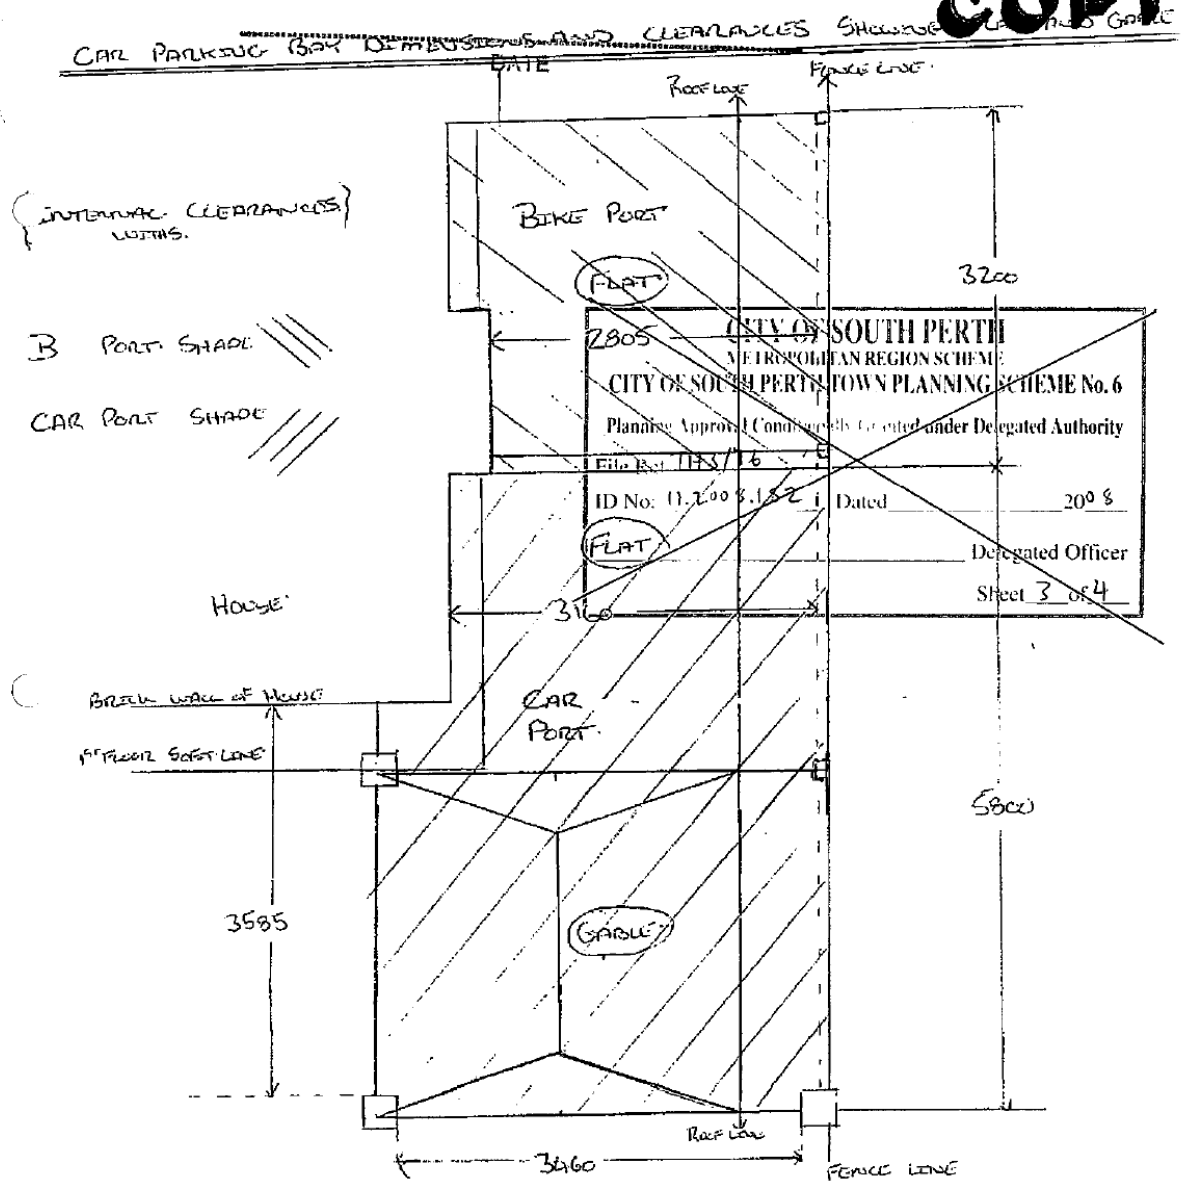 COPY
CAR PARKING BAY DIMENSIONS AND CLEARANCES SHOWING FLAT AND GABLE
DATE
ROOF LINE
FENCE LINE.
{INTERNAL CLEARANCES}
WIDTHS.
BIKE PORT
FLAT
3200
B PORT SHADE
2805
CITY OF SOUTH PERTH
METROPOLITAN REGION SCHEME
CITY OF SOUTH PERTH TOWN PLANNING SCHEME No. 6
CAR PORT SHADE
Planning Approval Conditionally Granted under Delegated Authority
File Ref
ID No: 11.2008.182 Dated 2008
FLAT
Delegated Officer
Sheet 3 of 4
HOUSE
3100
BRICK WALL OF HOUSE
CAR
PORT
1ST FLOOR SOFIT LINE
5800
3585
GABLE
ROOF LINE
3460
FENCE LINE